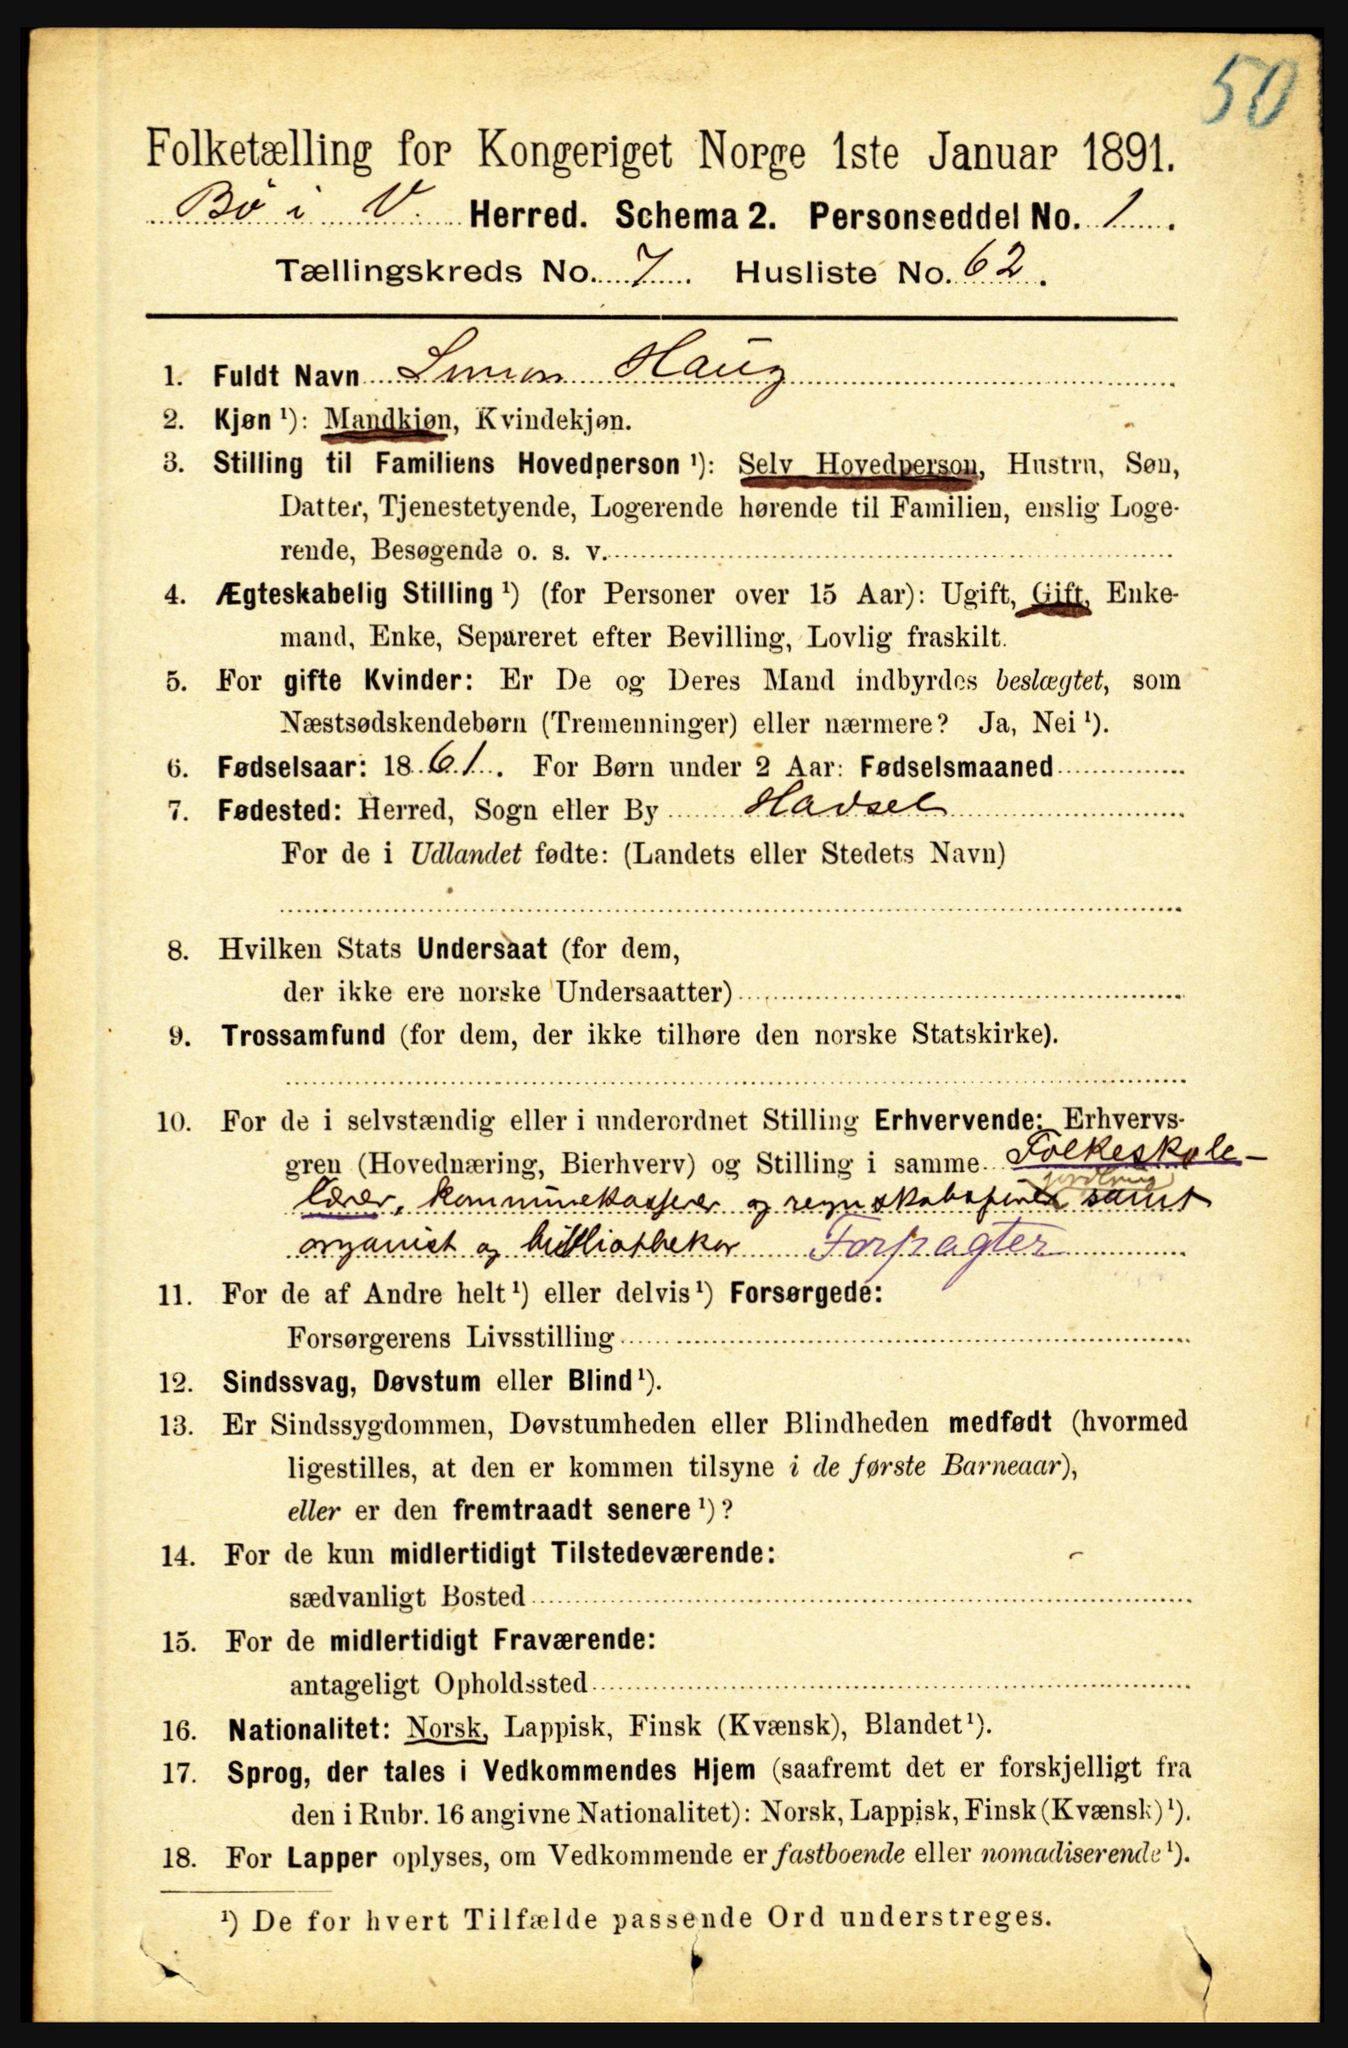 50
Folketælling for Kongeriget Norge 1ste Januar 1891.
Bö i V. Herred. Schema 2. Personseddel No. 1.
Tællingskreds No. 7. Husliste No. 62.
1. Fuldt Navn Simon Haug
2. Kjøn ¹): Mandkjøn, Kvindekjøn.
3. Stilling til Familiens Hovedperson ¹): Selv Hovedperson, Hustru, Søn,
Datter, Tjenestetyende, Logerende hørende til Familien, enslig Loge-
rende, Besøgende o. s. v.
4. Ægteskabelig Stilling ¹) (for Personer over 15 Aar): Ugift, Gift, Enke-
mand, Enke, Separeret efter Bevilling, Lovlig fraskilt.
5. For gifte Kvinder: Er De og Deres Mand indbyrdes beslægtet, som
Næstsødskendebørn (Tremenninger) eller nærmere? Ja, Nei ¹).
6. Fødselsaar: 1861. For Børn under 2 Aar: Fødselsmaaned
7. Fødested: Herred, Sogn eller By Hadsel
For de i Udlandet fødte: (Landets eller Stedets Navn)
8. Hvilken Stats Undersaat (for dem,
der ikke ere norske Undersaatter)
9. Trossamfund (for dem, der ikke tilhøre den norske Statskirke).
10. For de i selvstændig eller i underordnet Stilling Erhvervende: Erhvervs-
gren (Hovednæring, Bierhverv) og Stilling i samme Folkeskole-
lærer, kommunekasserer og regnskabsfører samt
organist og bibliothekar Forpagter
11. For de af Andre helt ¹) eller delvis ¹) Forsørgede:
Forsørgerens Livsstilling
12. Sindssvag, Døvstum eller Blind ¹).
13. Er Sindssygdommen, Døvstumheden eller Blindheden medfødt (hvormed
ligestilles, at den er kommen tilsyne i de første Barneaar),
eller er den fremtraadt senere ¹)?
14. For de kun midlertidigt Tilstedeværende:
sædvanligt Bosted
15. For de midlertidigt Fraværende:
antageligt Opholdssted
16. Nationalitet: Norsk, Lappisk, Finsk (Kvænsk), Blandet ¹).
17. Sprog, der tales i Vedkommendes Hjem (saafremt det er forskjelligt fra
den i Rubr. 16 angivne Nationalitet): Norsk, Lappisk, Finsk (Kvænsk) ¹).
18. For Lapper oplyses, om Vedkommende er fastboende eller nomadiserende ¹).
¹) De for hvert Tilfælde passende Ord understreges.